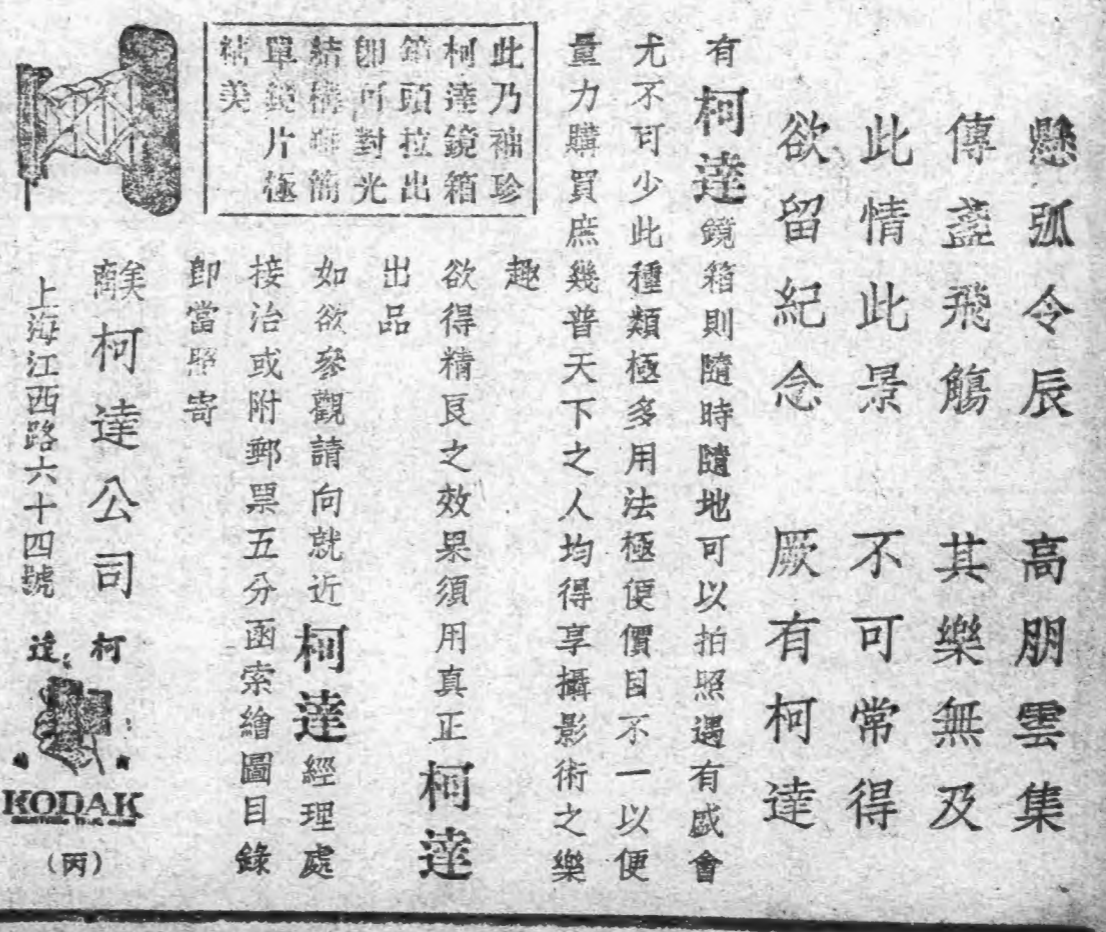 懸弧令辰　高朋雲集
傳盞飛觴　其樂無及
此情此景　不可常得
欲留紀念　厥有柯達
有柯達鏡箱則隨時隨地可以拍照遇有盛會
尤不可少此種類極多用法極便價目不一以便
量力購買庶幾普天下之人均得享攝影術之樂
趣
欲得精良之效果須用真正柯達
出品
如欲參觀請向就近柯達經理處
接洽或附郵票五分函索繪圖目錄
卽當照寄
此乃袖珍
柯達鏡箱
箭頭拉出
卽可對光
結構簡
單鏡片極
美
美商柯達公司
上海江西路六十四號
柯達
KODAK
(丙)